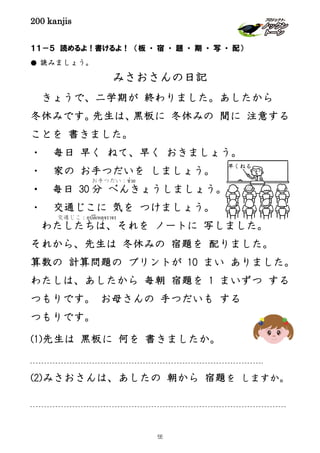 200 kanjis
プロジェクト
ノックノックトーン
11－5 読めるよ！書けるよ！（ 板 ・ 宿 ・ 題 ・ 期 ・ 写 ・ 配 ）
● 読みましょう。
みさおさんの日記
きょうで、二学期が 終わりました。あしたから
冬休みです。先生は、黒板に 冬休みの 間に 注意する
ことを 書きました。
・ 毎日 早く ねて、早く おきましょう。
・ 家の お手つだいを しましょう。
早くねる
おてつだい：ช่วย
・ 毎日 30 分 べんきょうしましょう。
・ 交通じこに 気を つけましょう。
交通じこ：อุบัติเหตุจราจร
わたしたちは、それを ノートに 写しました。
それから、先生は 冬休みの 宿題を 配りました。
算数の 計算問題の プリントが 10 まい ありました。
わたしは、あしたから 毎朝 宿題を 1 まいずつ する
つもりです。 お母さんの 手つだいも する
つもりです。
(1)先生は 黒板に 何を 書きましたか。
(2)みさおさんは、あしたの 朝から 宿題を しますか。